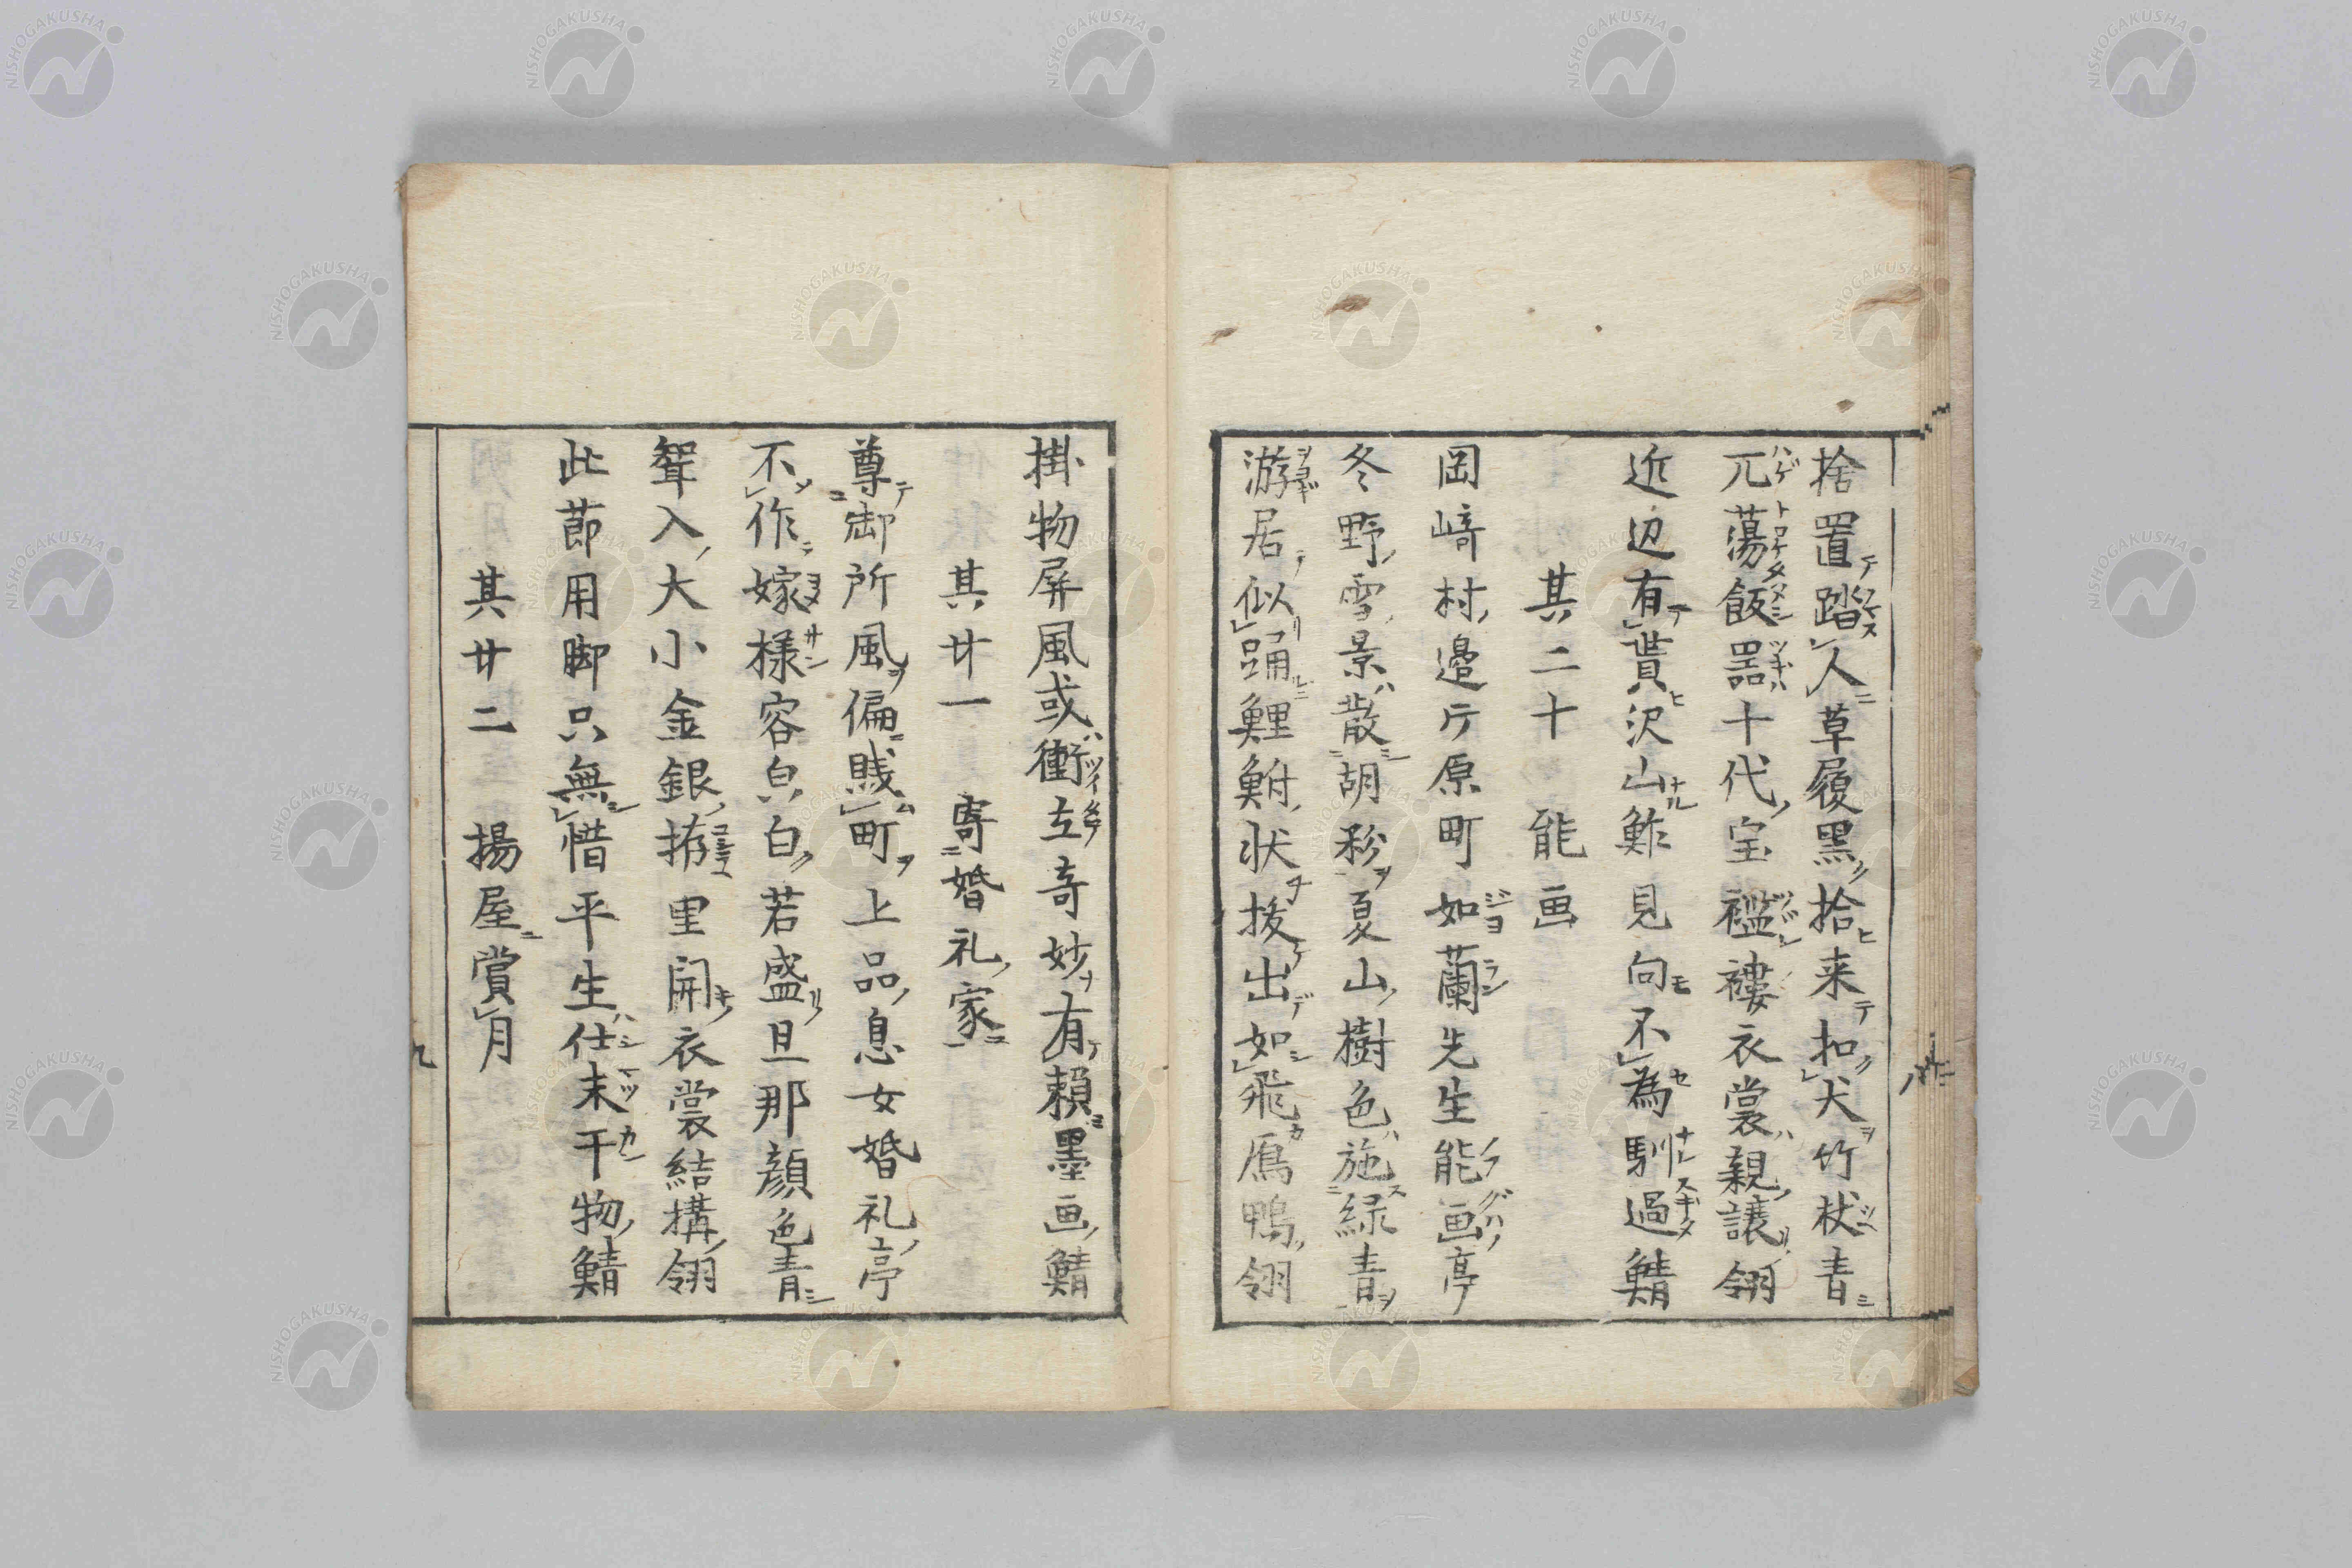 捨置踏人草履黑拾来扣犬竹杖青
兀蕩飯器十代宝襤褸衣裳親讓翎
近辺有貰沢山鮓見向不為馴過鯖
其二十　能画
岡﨑村邉片原町如蘭先生能画亭
冬野雪景散胡粉夏山樹色施緑青
游居似踊鯉鮒状抜出如飛鴈鴨翎
掛物屏風或衝立奇妙有賴墨画鯖
其廿一　寄婚礼家
尊御所風偏賤町上品息女婚礼亭
不作嫁様容皃白若盛旦那顔色青
聟入大小金銀拵里開衣裳結構翎
此節用脚只無惜平生仕末干物鯖
其廿二　揚屋賞月
九